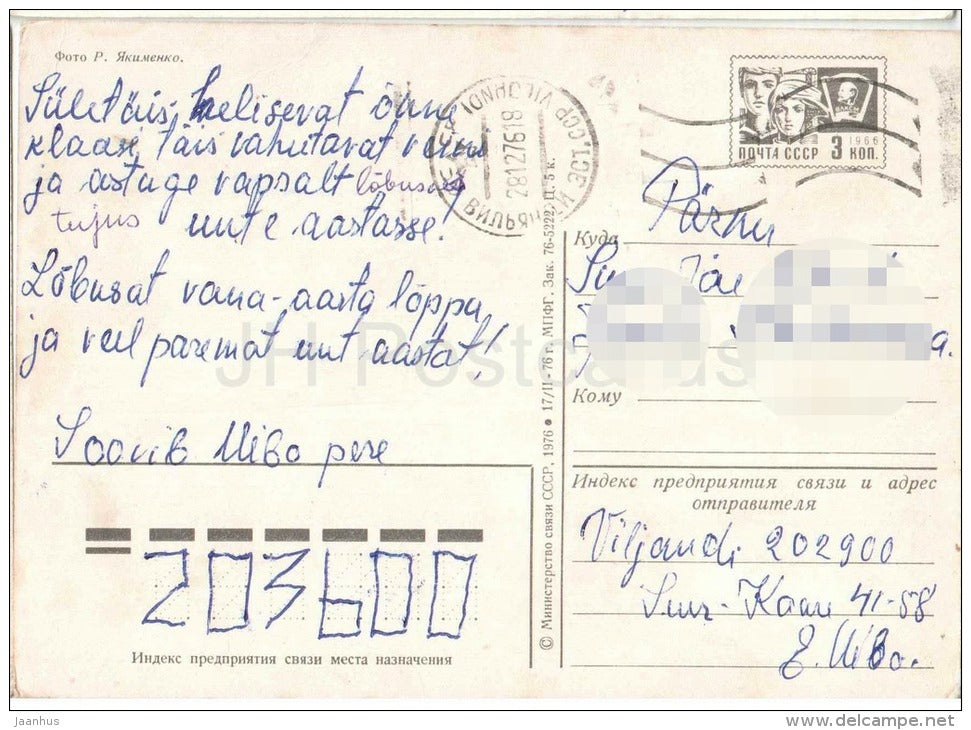 Фото Р. Якименко.
Sületäis, helisevat õnne
klaasi täis vahutavat veini
ja astuge vapsalt lõbusas
tujus uute aastasse!
Lõbusat vana-aasta lõppu
ja veel paremat uut aastat!
Soovib Uibo pere
203600
Индекс предприятия связи места назначения
© Министерство связи СССР, 1976 ● 17/II - 76 г. МПФГ. Зак. 76-5222. Ц. 5 к.
VILJANDI
281276 18
ПОЧТА СССР 3 КОП.
1966
Куда Pärnu
Кому
Индекс предприятия связи и адрес
отправителя
Viljandi 202900
Suur-Kaare 41-58
E. Uibo.
JH Postcards
jaanhus
www.delcampe.net